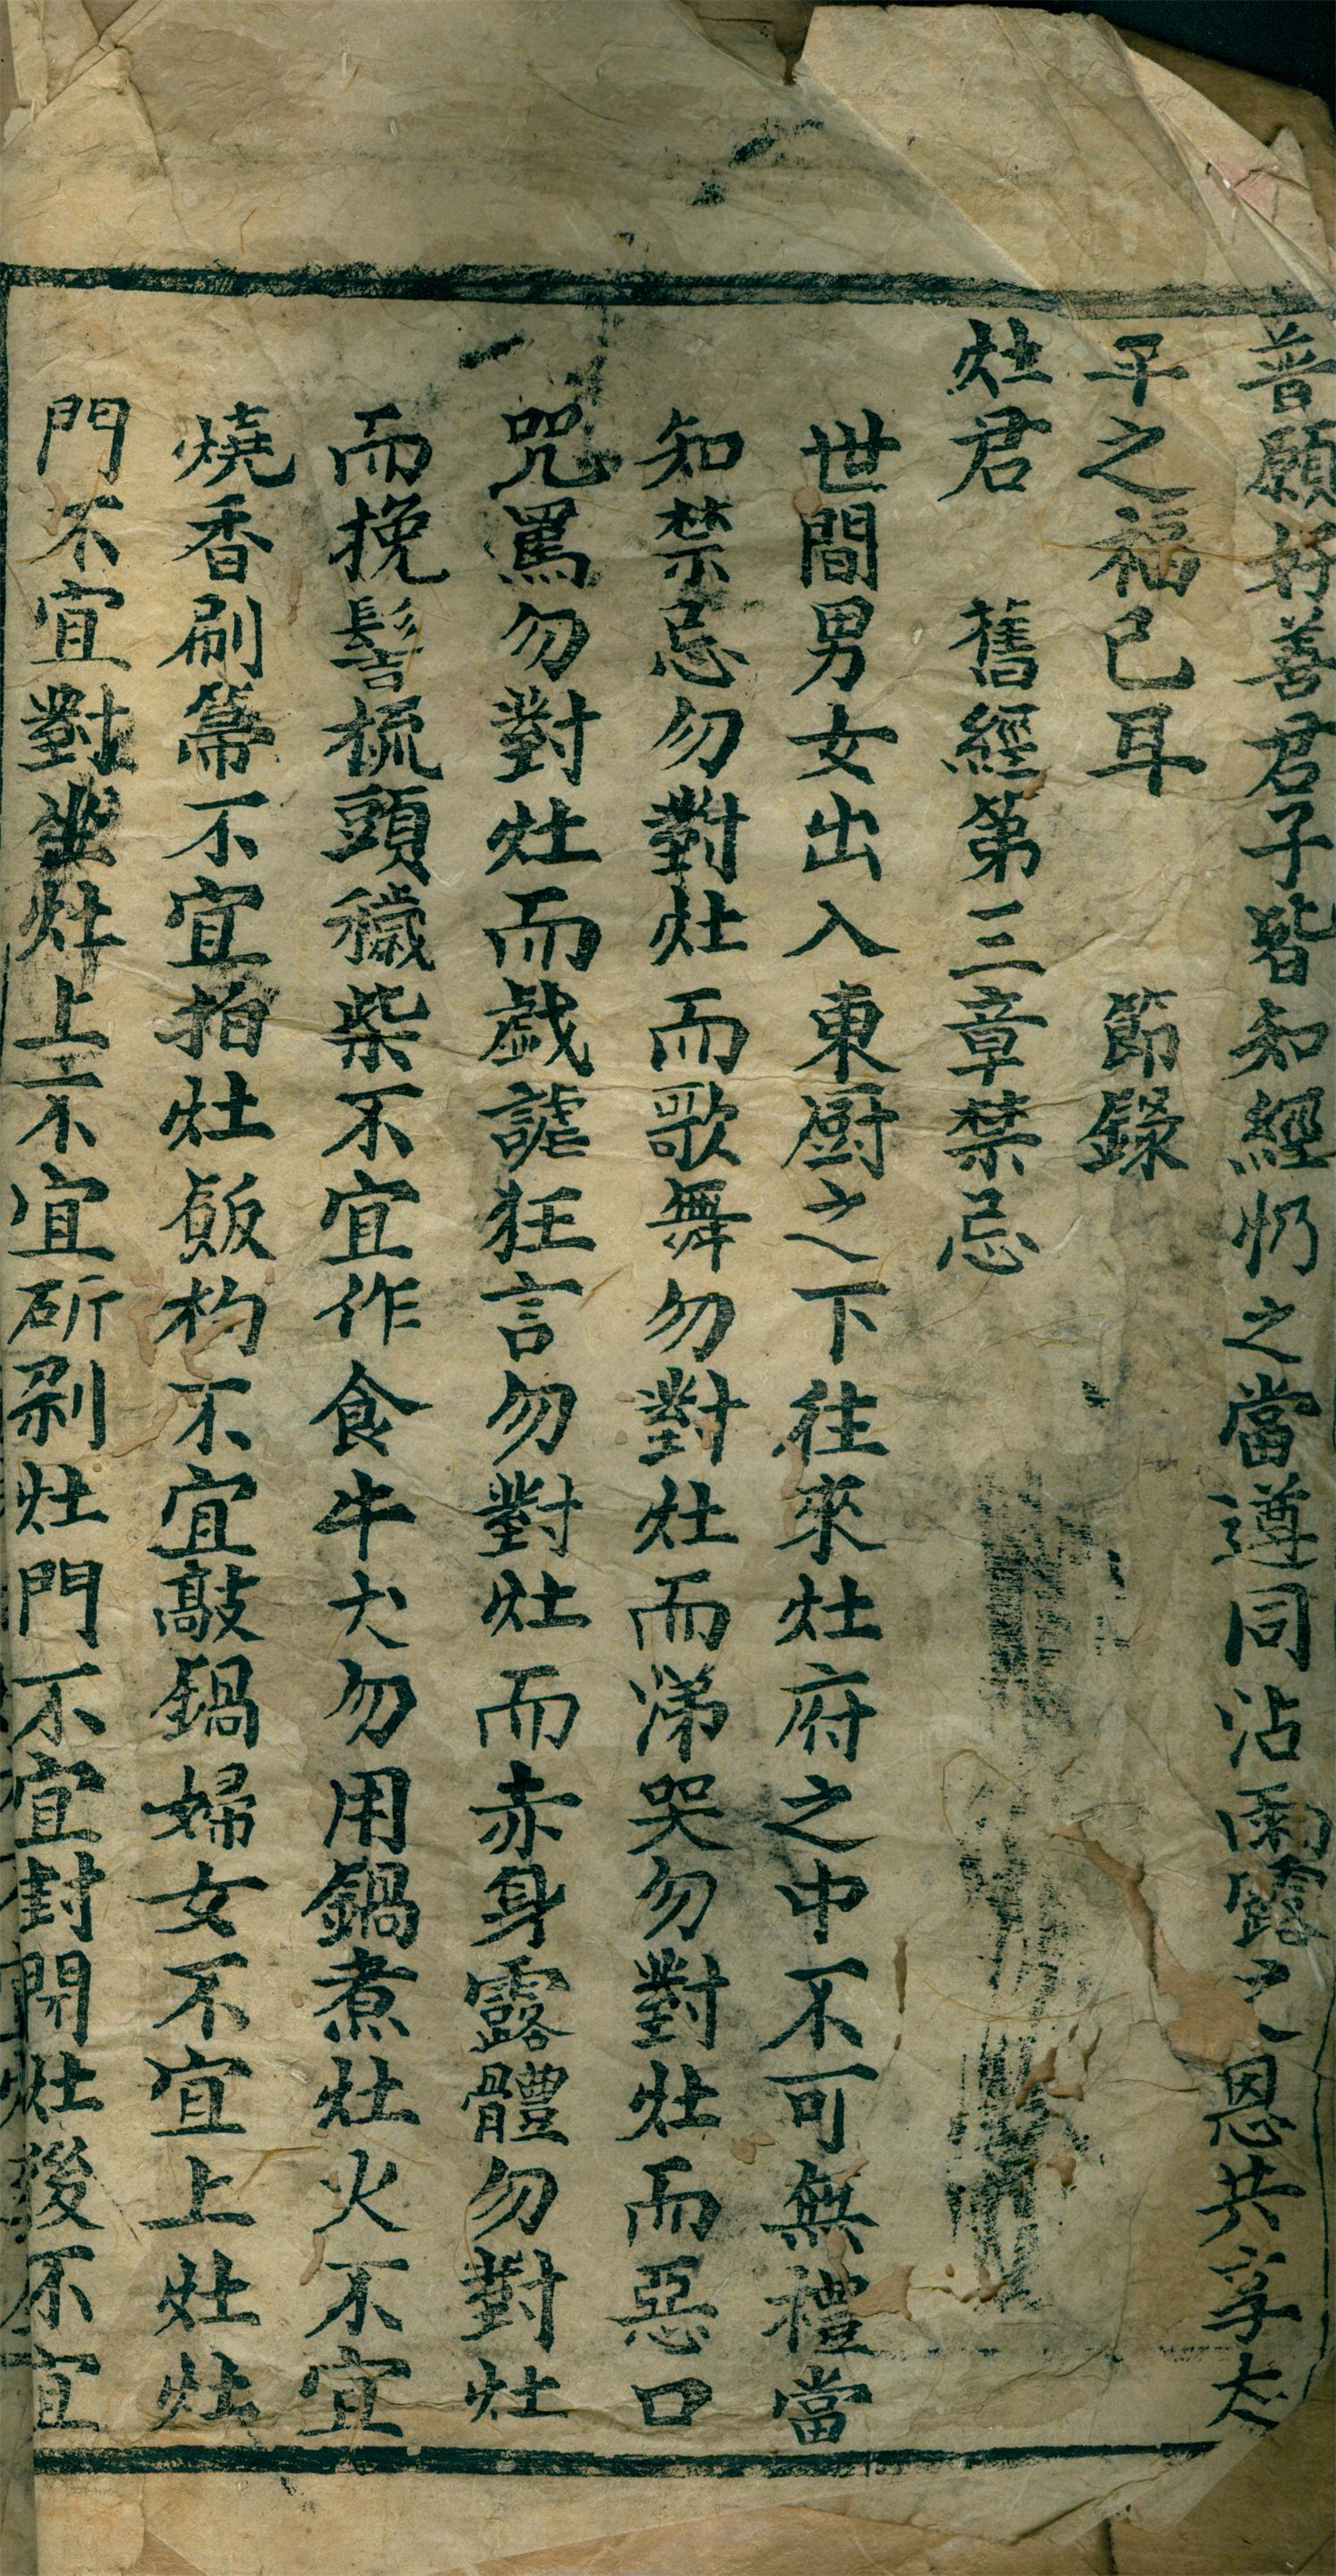 普願好善君子皆知經忉之當遵同沾雨露之恩共享太
平之福已耳　節錄
灶君　舊經第三章禁忌
世間男女出入東厨之下往來灶府之中不可無禮當
知禁忌勿對灶而歌舞勿對灶而涕哭勿對灶而惡口
咒罵勿對灶而戯謔狂言勿對灶而赤身露體勿對灶
而挽髻梳頭穢柴不宜作食牛犬勿用鍋煮灶火不宜
燒香刷箒不宜拍灶飯杓不宜敲鍋婦女不宜上灶灶
門不宜對坐灶上不宜斫剁灶門不宜封開灶後不宜